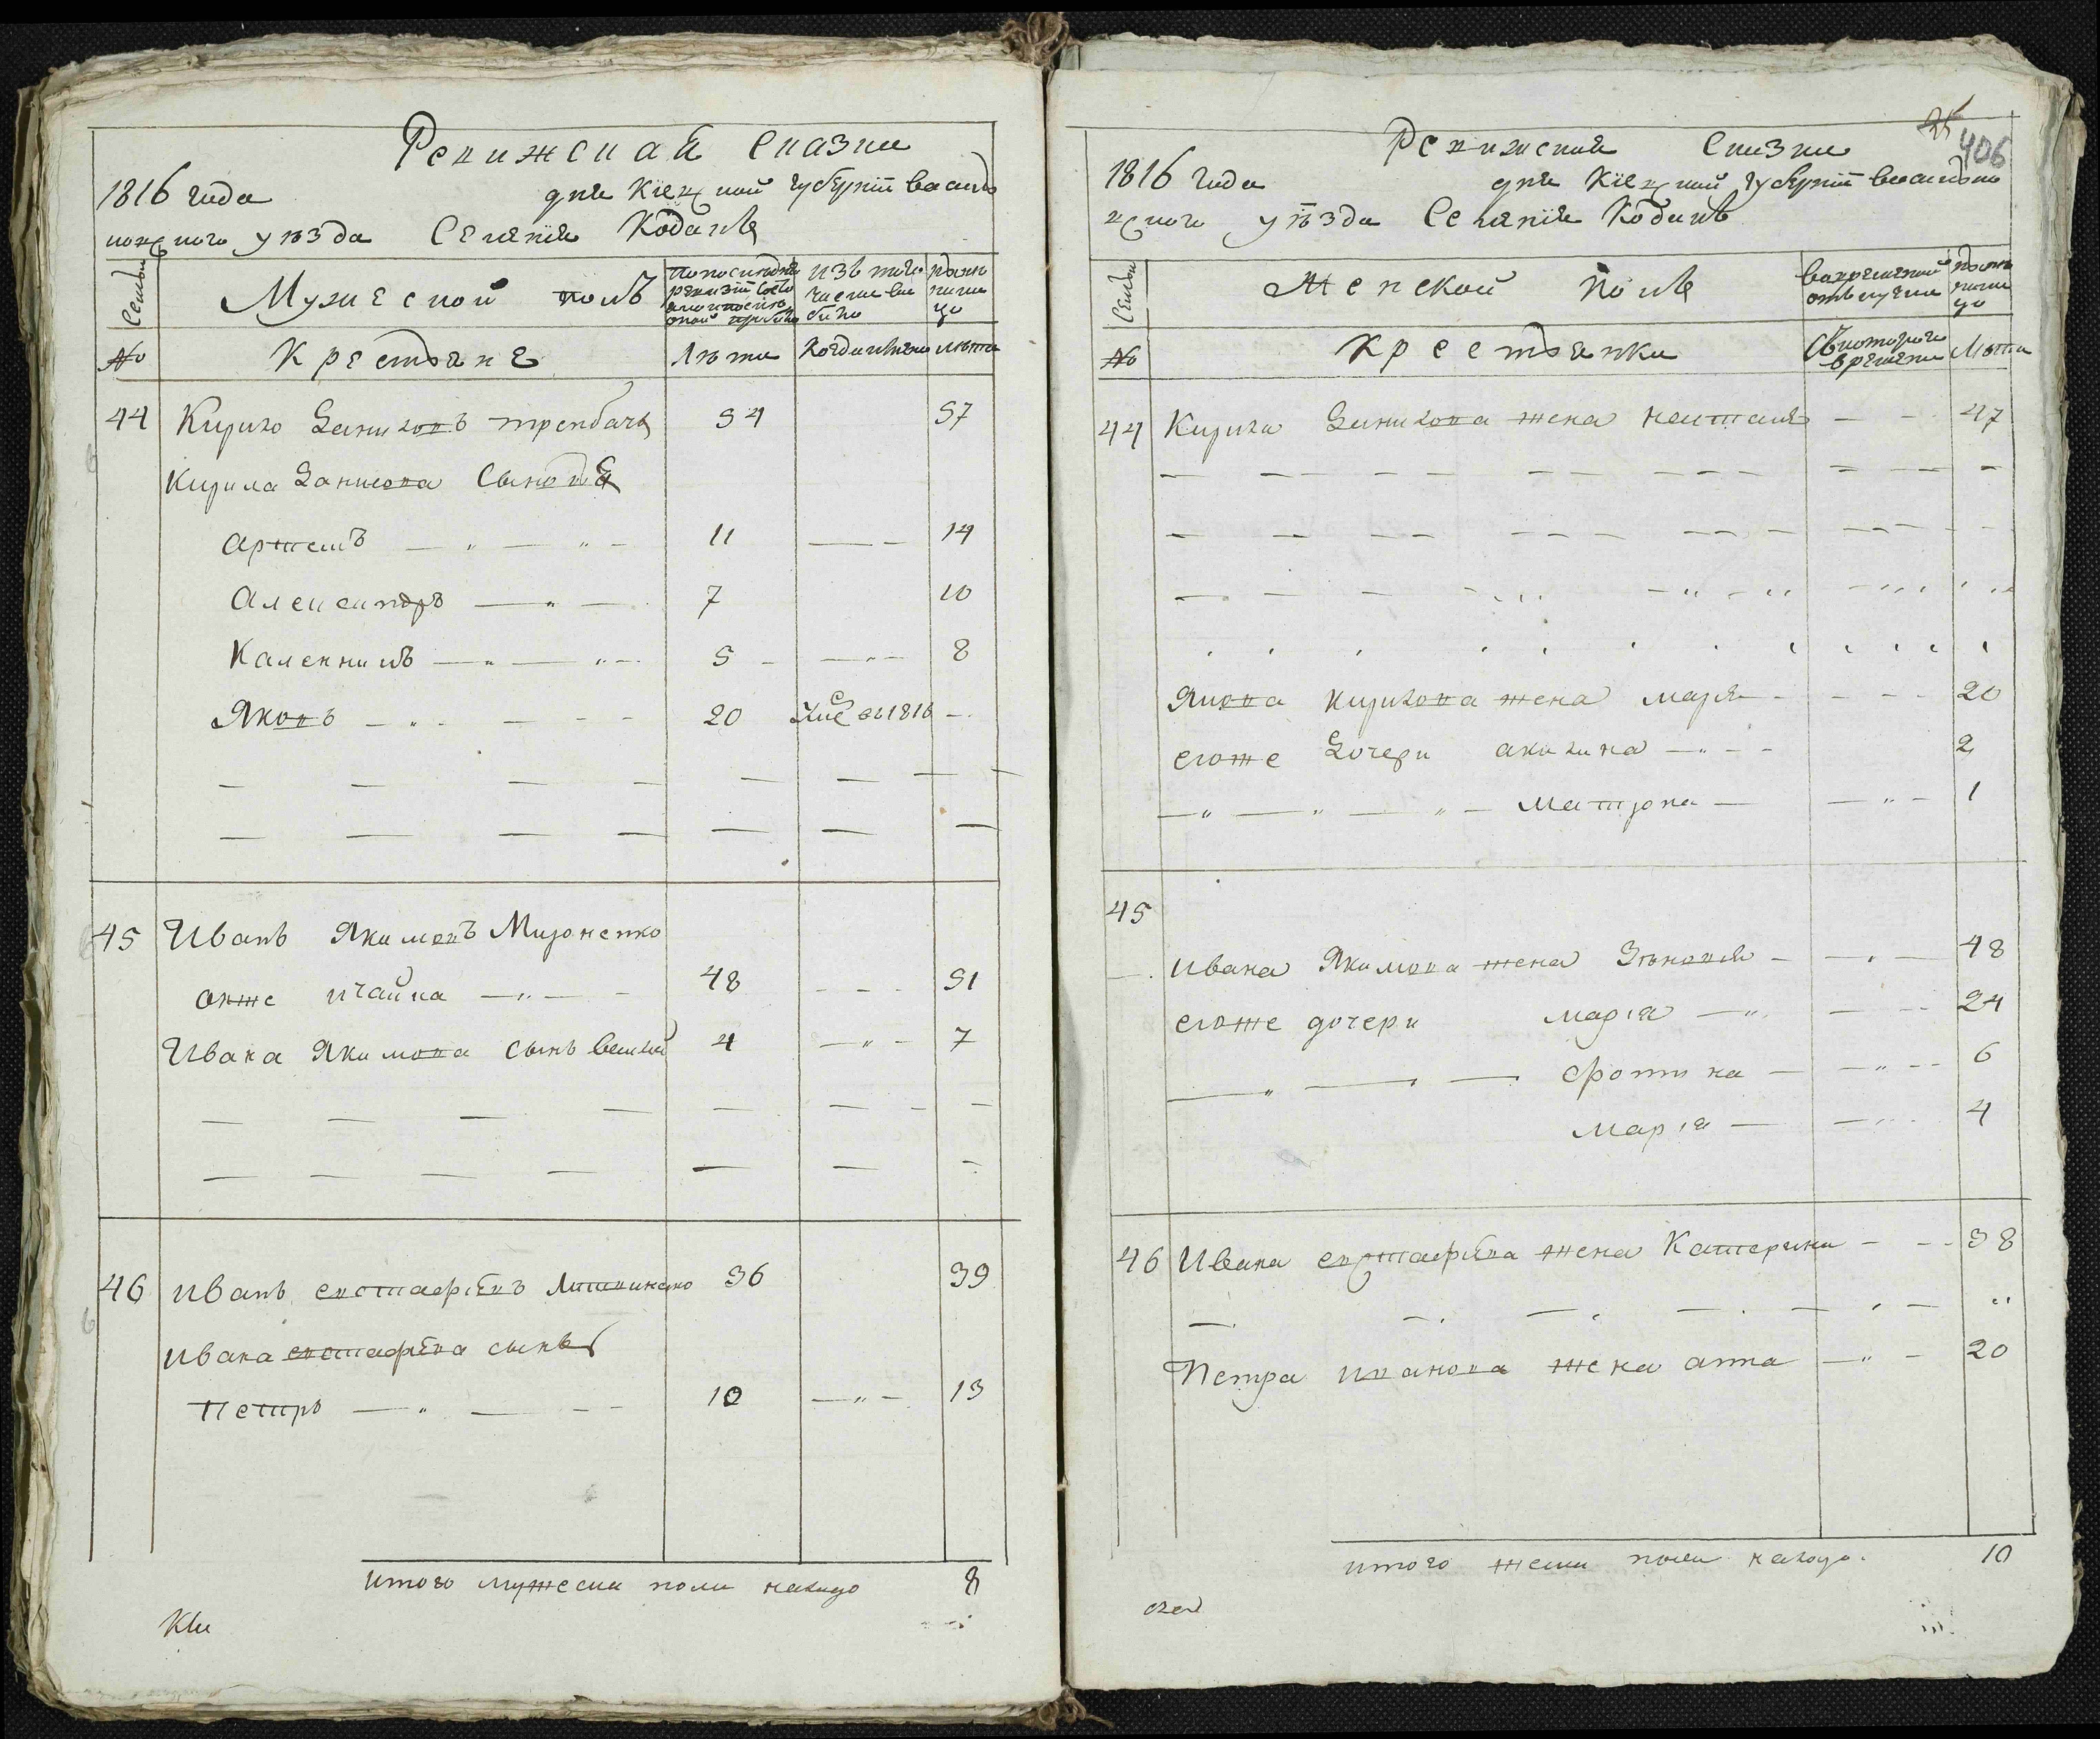 Ревижская сказки
1816 года дня Кіевской губерніи василь
ковского уѣзда Селенія Кодакъ
Семьи
Мужеской полъ
По последней ревизіи состо яло и после оной прибыло
изъ того числа вы было
ныне на ли цо
№
Крестьяне
Лѣта
Когда именно
лѣта
44 Кирило Даниловъ трембачъ 54 57
Кирила Данилова Сыновья
артемъ — " — " — 11 — — 14
Александръ — " — 7 10
Каленникъ — " — " — 5 — — " — 8
Яковъ — " — — — — 20 въ 1816 —
— — — — — — — —
— — — — — — —
45 Иванъ Якимовъ Мироненко
онже чайка — " — — 48 — — — 51
Ивана Якимова сынъ василій 4 — " — 7
— — — — — — — —
— — — — — — —
46 иванъ евстафіевъ Литвиненко 36 39
ивана евстафіева сынъ
Петръ — " — — — 10 — " — 13
итого мужеска пола налицо 8
25
406
Ревижская Сказки
1816 года дня Кіевской губерніи василько
вского уѣзда Селенія Кодакъ
Семьи
Женской полъ
во временной отлучке
ныне на ли цо
№
Крестьянки
Съ которого времени
Лѣта
44 Кирила Данилова жена наталія — — 47
— — — — — — — — — — — — —
— — — — — — — — — — — — — —
Якова кирилова жена марія — — — — 20
егоже Дочери акилина — " — — 2
— " — " — " — матрона — — " — 1
45
— ивана Якимова жена Зѣновія — — " — 48
егоже дочери марія — " — — — 24
— " — — — фотина — — " — — 6
марія — — " — 4
46 Ивана евстафіева жена Катерина — — — 38
— — — — — — — "
Петра иванова жена анна — " — 20
итого женска пола налицо. 10